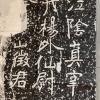 江陰真宰
丹楊外仙尉
山徵君